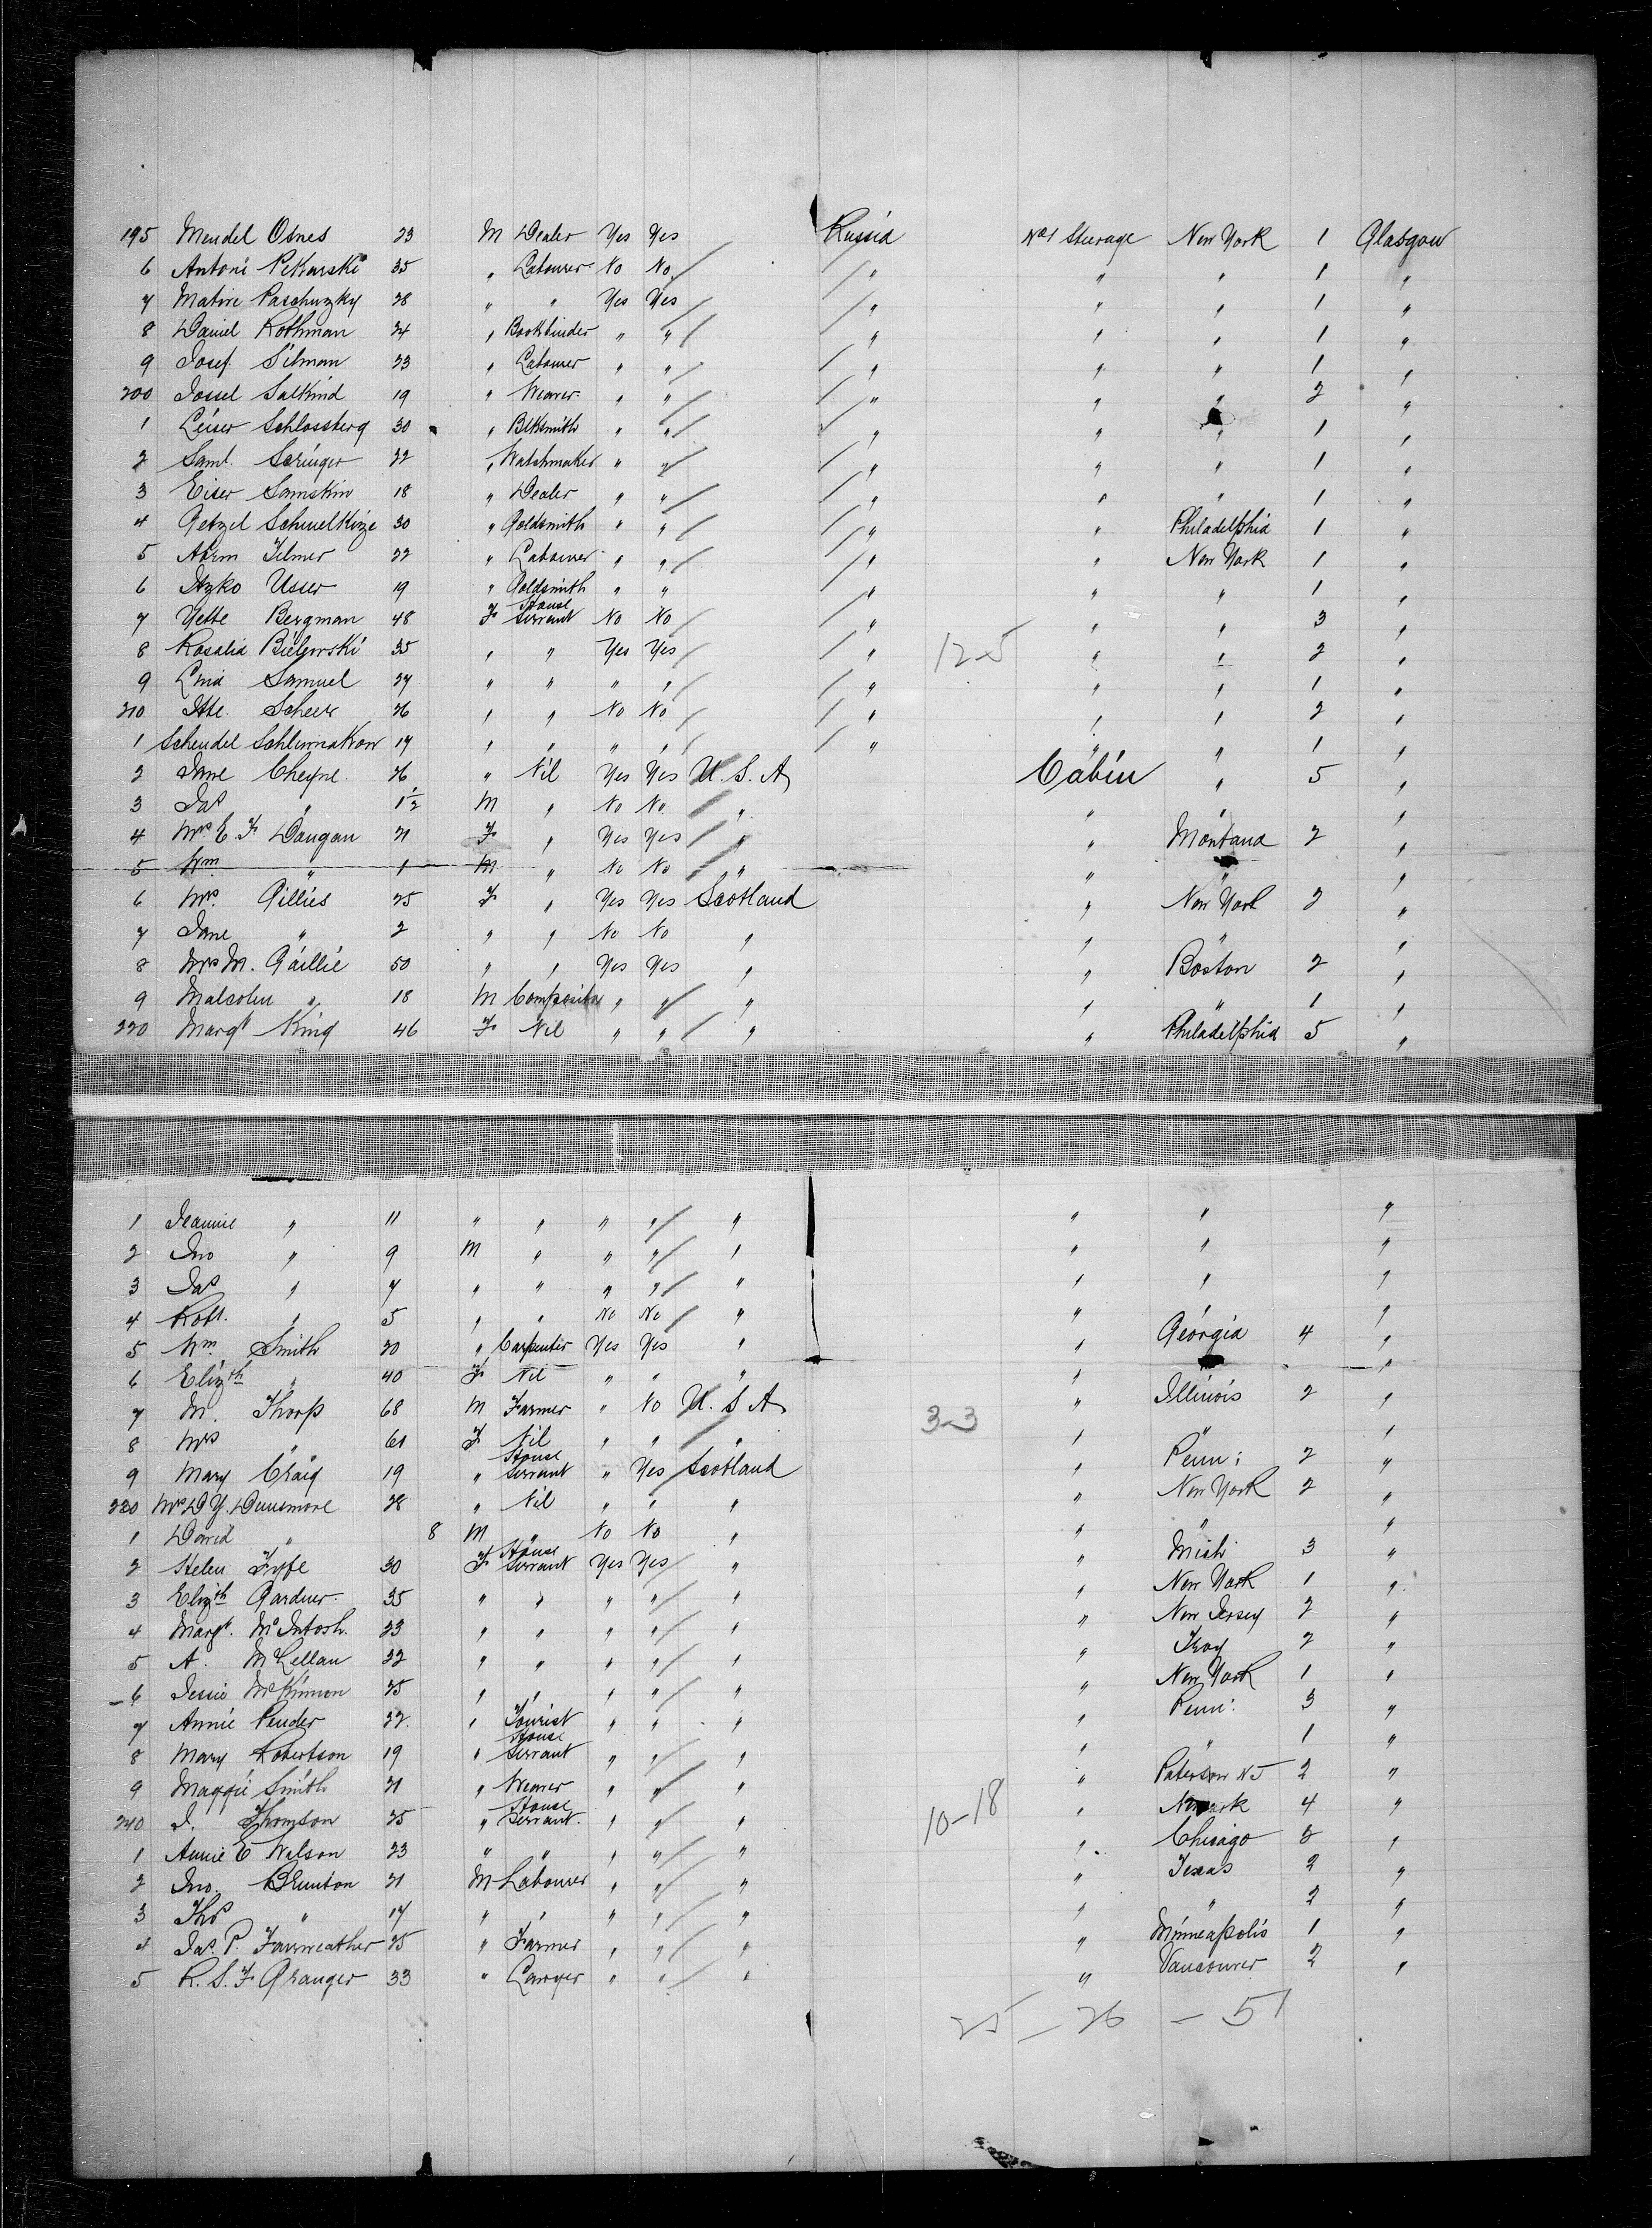 195 Mendel Osnes 23 M Dealer Yes Yes Russia Steerage New York 1 Glasgow
6 Antoni Pekarski 35 " Labourer No No " " " 1 "
7 Paschuzky 28 " " Yes Yes " " " 1 "
8 Daniel Rothman 24 " Bookbinder " " " " " 1 "
9 Josef Silman 23 " Labourer " " " " " 1 "
200 Jossel Salkind 19 " Weaver " " " " " 2 "
1 Leiser Schlossberg 30 " Blksmith " " " " " 1 "
2 Saml. " Watchmaker " " " " " 1 "
3 Eiser Samskin 18 " Dealer " " " " " 1 "
4 Getzel 30 " Goldsmith " " " " Philadelphia 1 "
5 Abrm 22 " Labourer " " " " New York 1 "
6 Itzko Usser 19 " Goldsmith " " " " " 1 "
7 Yette Bergman 48 F House Servant No No " " " 3 "
8 Rosalia 35 " " Yes Yes " 12-5 " " 2 "
9 Samuel " " " " " " " 1 "
210 Itte. Scheer 26 " " No No " " " 2 "
1 Scheudel " " " " " " " 1 "
2 Jane Cheyne 26 " Nil Yes Yes U.S.A Cabin " 5 "
3 Jas " 1½ M " No No " " " "
4 Mrs E. F. Dougan 21 F " Yes Yes " " Montana 2 "
5 Wm " 1 M " No No " " " "
6 Mrs. Gillies 25 F " Yes Yes Scotland " New York 2 "
7 Jane " 2 " " No No " " " "
8 Mrs M. Gaillie 50 " " Yes Yes " " Boston 2 "
9 Malcolm " 18 M Compositor " " " " " 1 "
220 Margt King 46 F Nil " " " " Philadelphia 5 "
1 Jeannie " 11 " " " " " " " "
2 Jno " 9 M " " " " " " "
3 Jas " 7 " " " " " " " "
4 Robt. " 5 " " No No " " " "
5 Wm Smith 20 " Carpenter Yes Yes " " Georgia 4 "
6 Elizth " 40 F Nil " " " " "
7 M. Thorp 68 M Farmer " No U.S.A 3-3 " Illinois 2 "
8 Mrs " 61 F Nil " " " " "
9 Mary Craig 19 " House Servant " Yes Scotland " Penn: 2 "
230 Mrs D Y. Dunsmore 28 " Nil " " " " New York 2 "
1 David " 8 M " No No " " " "
2 Helen Fyfe 30 F House Servant Yes Yes " " Mich 3 "
3 Elizth Gardner 35 " " " " " " New York 1 "
4 Margt. McIntosh 23 " " " " " " New Jersey 2 "
5 A. McLellan 22 " " " " " " Troy 2 "
6 Jessie McKinnon 25 " " " " " " New York 1 "
7 Annie Pender 22 " Tourist " " " " Penn: 3 "
8 Mary Robertson 19 " House Servant " " " " " 1 "
9 Maggie Smith 21 " Weaver " " " " Paterson NJ 2 "
240 J. Thomson 25 " House Servant " " " 10-18 " Newark 4 "
1 Annie E Watson 23 " " " " " " Chicago 2 "
2 Jno. Brunton 21 M Labourer " " " " Texas 2 "
3 Thos " 17 " " " " " " " 2 "
4 Jas. P. Fairweather 25 " Farmer " " " " Minneapolis 1 "
5 R. S. F Granger 33 " Lawyer " " " " Vancouver 2 "
25 - 26 - 51